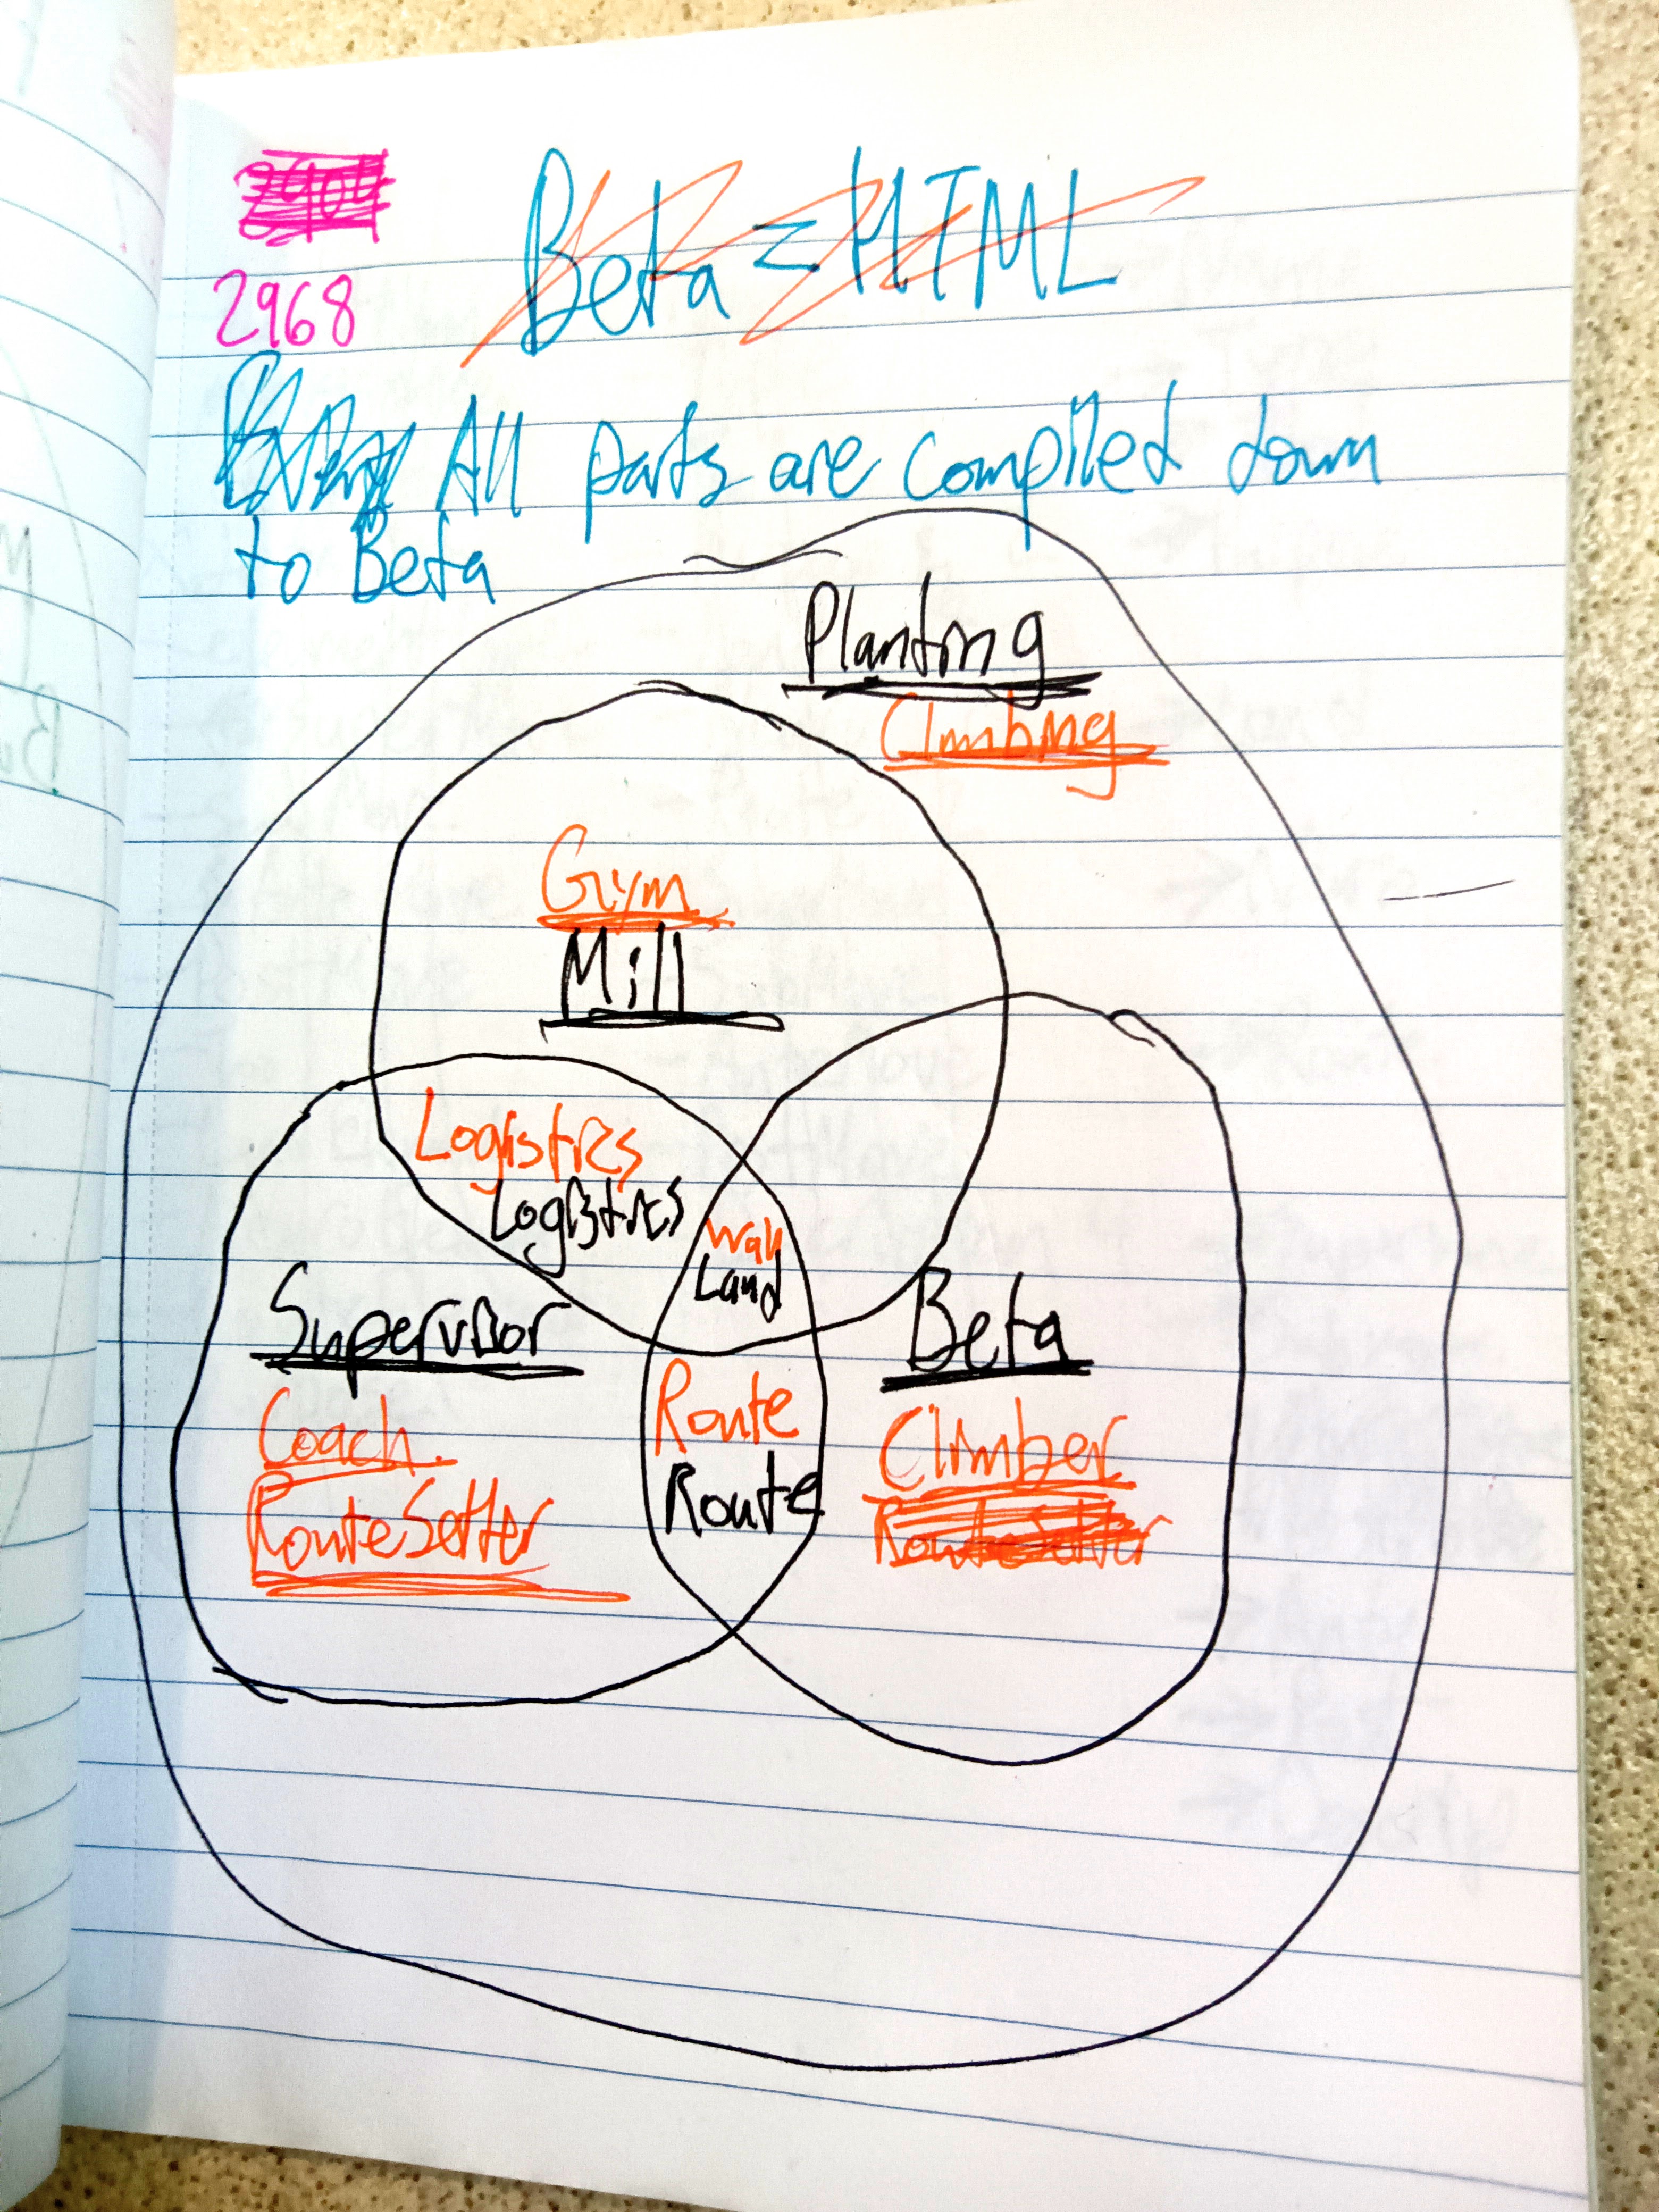 2968
Beta = HTML
All parts are compiled down
to Beta
Planting
Climbing
Gym
Mill
Logistics
Logistics
Wall
Land
Supervisor
Beta
Coach
Route Setter
Route
Route
Climber
Route Setter